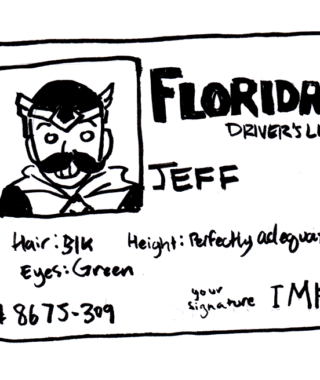 FLORIDA
DRIVER'S LI
JEFF
Hair: Blk Height: Perfectly adequa
Eyes: Green
# 8675-309
your signature IMH